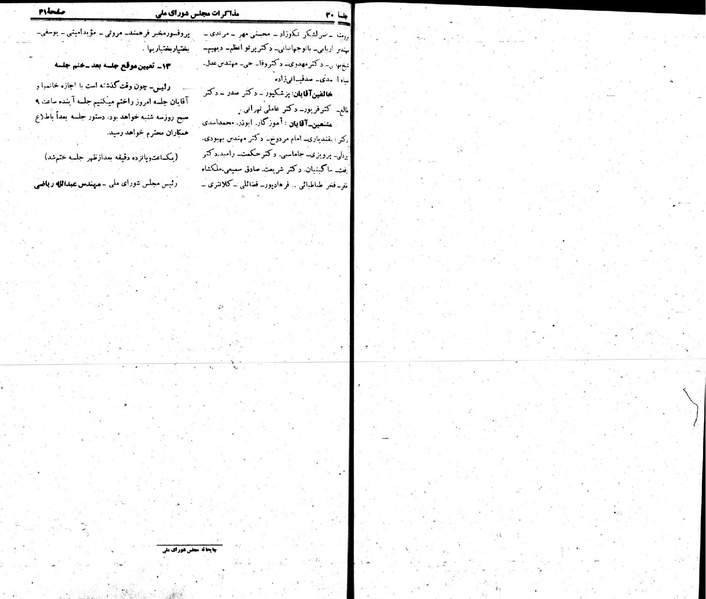 جلسه ۳۰ مذاکرات مجلس شورای ملی صفحهٔ ۴۱
سرلشکر نکوزاد ـ محسنی مهر ـ مرندی ـ
اربابی ـ بانوجهانبانی ـ دکتر پرتو اعظم ـ دیهیم ـ
دکتر مهدوی ـ دکتر وفا ـ حی ـ مهندس عدل ـ
صدقیانی‌زاده
مخالفین آقایان: پزشکپور ـ دکتر صدر ـ دکتر
دکتر فریور ـ دکتر عاملی تهرانی
ممتنعین ـ آقایان: آموزگار. ابوذر. محمداسدی
اسفندیاری ـ امام مردوخ ـ دکتر مهندس بهبودی.
پرویزی ـ جاماسبی. دکتر حکمت ـ رامبد. دکتر
ساگینیان. دکتر شریعت. صادق سمیعی. ملکشاه
ظفر ـ فخر طباطبائی ـ فرهادپور ـ فضائلی ـ کلانتری ـ
پروفسور مخبر فرهمند ـ مروتی ـ مؤیدامینی ـ یوسفی ـ
بختیاربختیاریها .
۱۳ـ تعیین موقع جلسه بعد ـ ختم جلسه
رئیس ـ چون وقت گذشته است با اجازه خانمها و
آقایان جلسه امروز را ختم میکنیم جلسه آینده ساعت ۹
صبح روز سه شنبه خواهد بود. دستور جلسه بعداً باطلاع
همکاران محترم خواهد رسید.
(یکساعت و پانزده دقیقه بعد از ظهر جلسه ختم شد)
رئیس مجلس شورای ملی ـ مهندس عبدالله ریاضی
چاپخانه مجلس شورای ملی